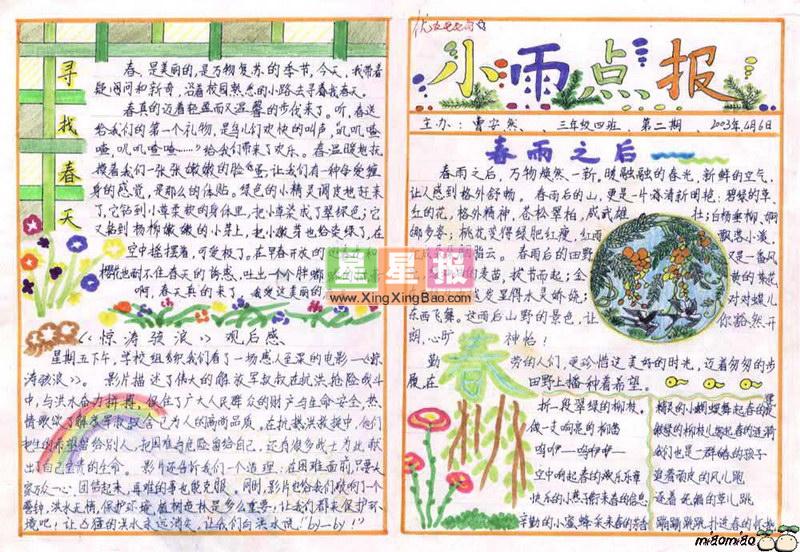 寻找春天
春，是美丽的，是万物复苏的季节，今天，我带着
疑问和新奇，沿着校园熟悉的小路去寻找春天。
春真的迈着轻盈而又温馨的步伐来了。听，春送
给我们的第一个礼物，是鸟儿们欢快的叫声，叽叽喳
喳，叽叽喳喳……给我们带来了欢乐。春温暖地抚
摸着我们一张张嫩嫩的脸蛋，让我们有一种母爱缠
身的感觉，是那么的体贴。绿色的小精灵调皮地赶来
了，它钻到小草柔软的身体里，把小草染成了翠绿色；它
又钻到杨柳嫩嫩的小芽上，把小嫩芽也给染绿了，在
空中摇摆着，可爱极了。在早春开放的
樱花也耐不住春天的诱惑，吐出一个个
啊，春天真的来了，
《惊涛骇浪》观后感
星期五下午，学校组织我们看了一场感人至深的电影—《惊
涛骇浪》。影片描述了伟大的解放军叔叔在抗洪抢险战斗
中，与洪水奋力拼搏，保住了广大人民群众的财产与生命安全，热
情歌颂了解放军叔叔舍己为人的高尚品质。在抗洪抢救中，他们
把生的希望留给别人，把困难与危险留给自己，还有很多战士为此献
出了自己宝贵的生命。影片还告诉我们一个道理：在困难面前，只要大
家万众一心，团结起来，再难的事也能克服。同时，影片也给我们敲响了一个
警钟，洪水无情，保护环境，植树造林是多么重要，让我们都来保护环
境吧，让凶猛的洪水永远消失，让我们向洪水说："by—by！"
小雨点报
主办：曹安然、三年级四班、第二期、2003年4月6日
春雨之后
春雨之后，万物焕然一新，暖融融的春光，新鲜的空气，
让人感到格外舒畅。春雨后的山，更是一片海清新田艳：碧绿的草，
红的花，格外精神，苍松翠柏，威武雄壮；白杨垂柳，婀
娜多姿；桃花变得绿肥红瘦，红雨飘落小溪，
春雨后的田野又是一番风
的麦苗，拔节而起；金黄的菜花，
发里得水灵娇娆；对对蝶儿
东西飞舞。这雨后山野的景色，让你豁然开
朗，心旷神怡！
勤劳的人们，更珍惜这美好的时光，迈着匆匆的步
履在田野上播种着希望。
春
折一段翠绿的柳枝，
做一支响亮的柳笛
呜咿—呜咿咿—
空中响起春的欢乐乐章
快乐的小燕子衔来春的信息
辛勤的小蜜蜂采来春的芬香
精灵的小蝴蝶舞起春的
嫩绿的柳枝儿荡起春的涟漪
我们也是一群酷酷的孩子
追着雨皮的风儿跑
逐着
蹦蹦跳跳 扑进春的怀抱
星星报
www.XingXingBao.com
miaomiao